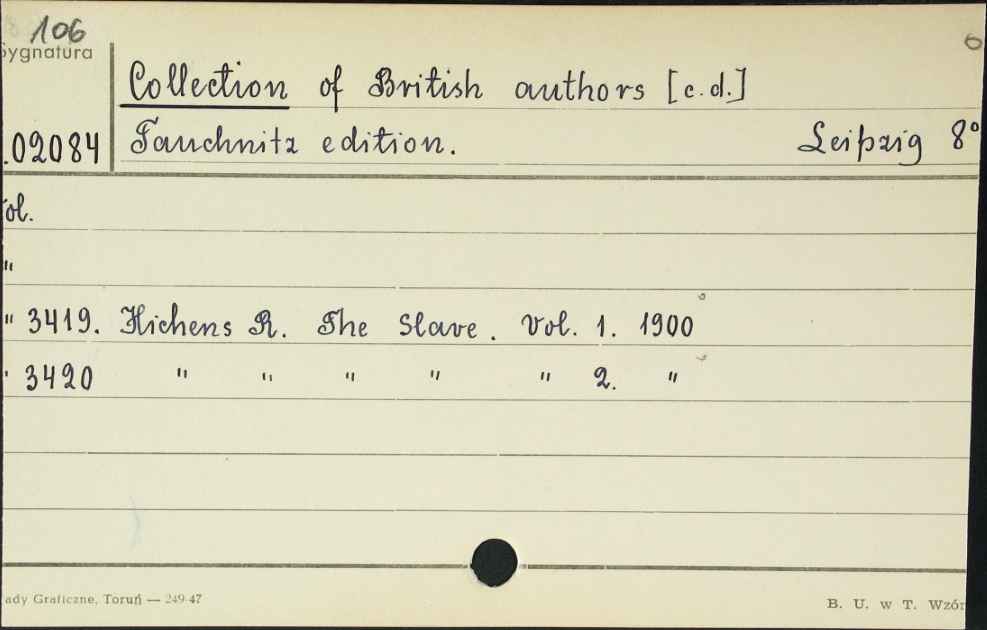 106
Sygnatura
Collection of British authors [c.d.]
.02084 Tauchnitz edition. Leipzig 8°
Vol.
"
" 3419. Hichens R. The Slave. Vol. 1. 1900
" 3420 " " " " " 2. "
ady Graficzne, Toruń — 249-47
B. U. w T. Wzór